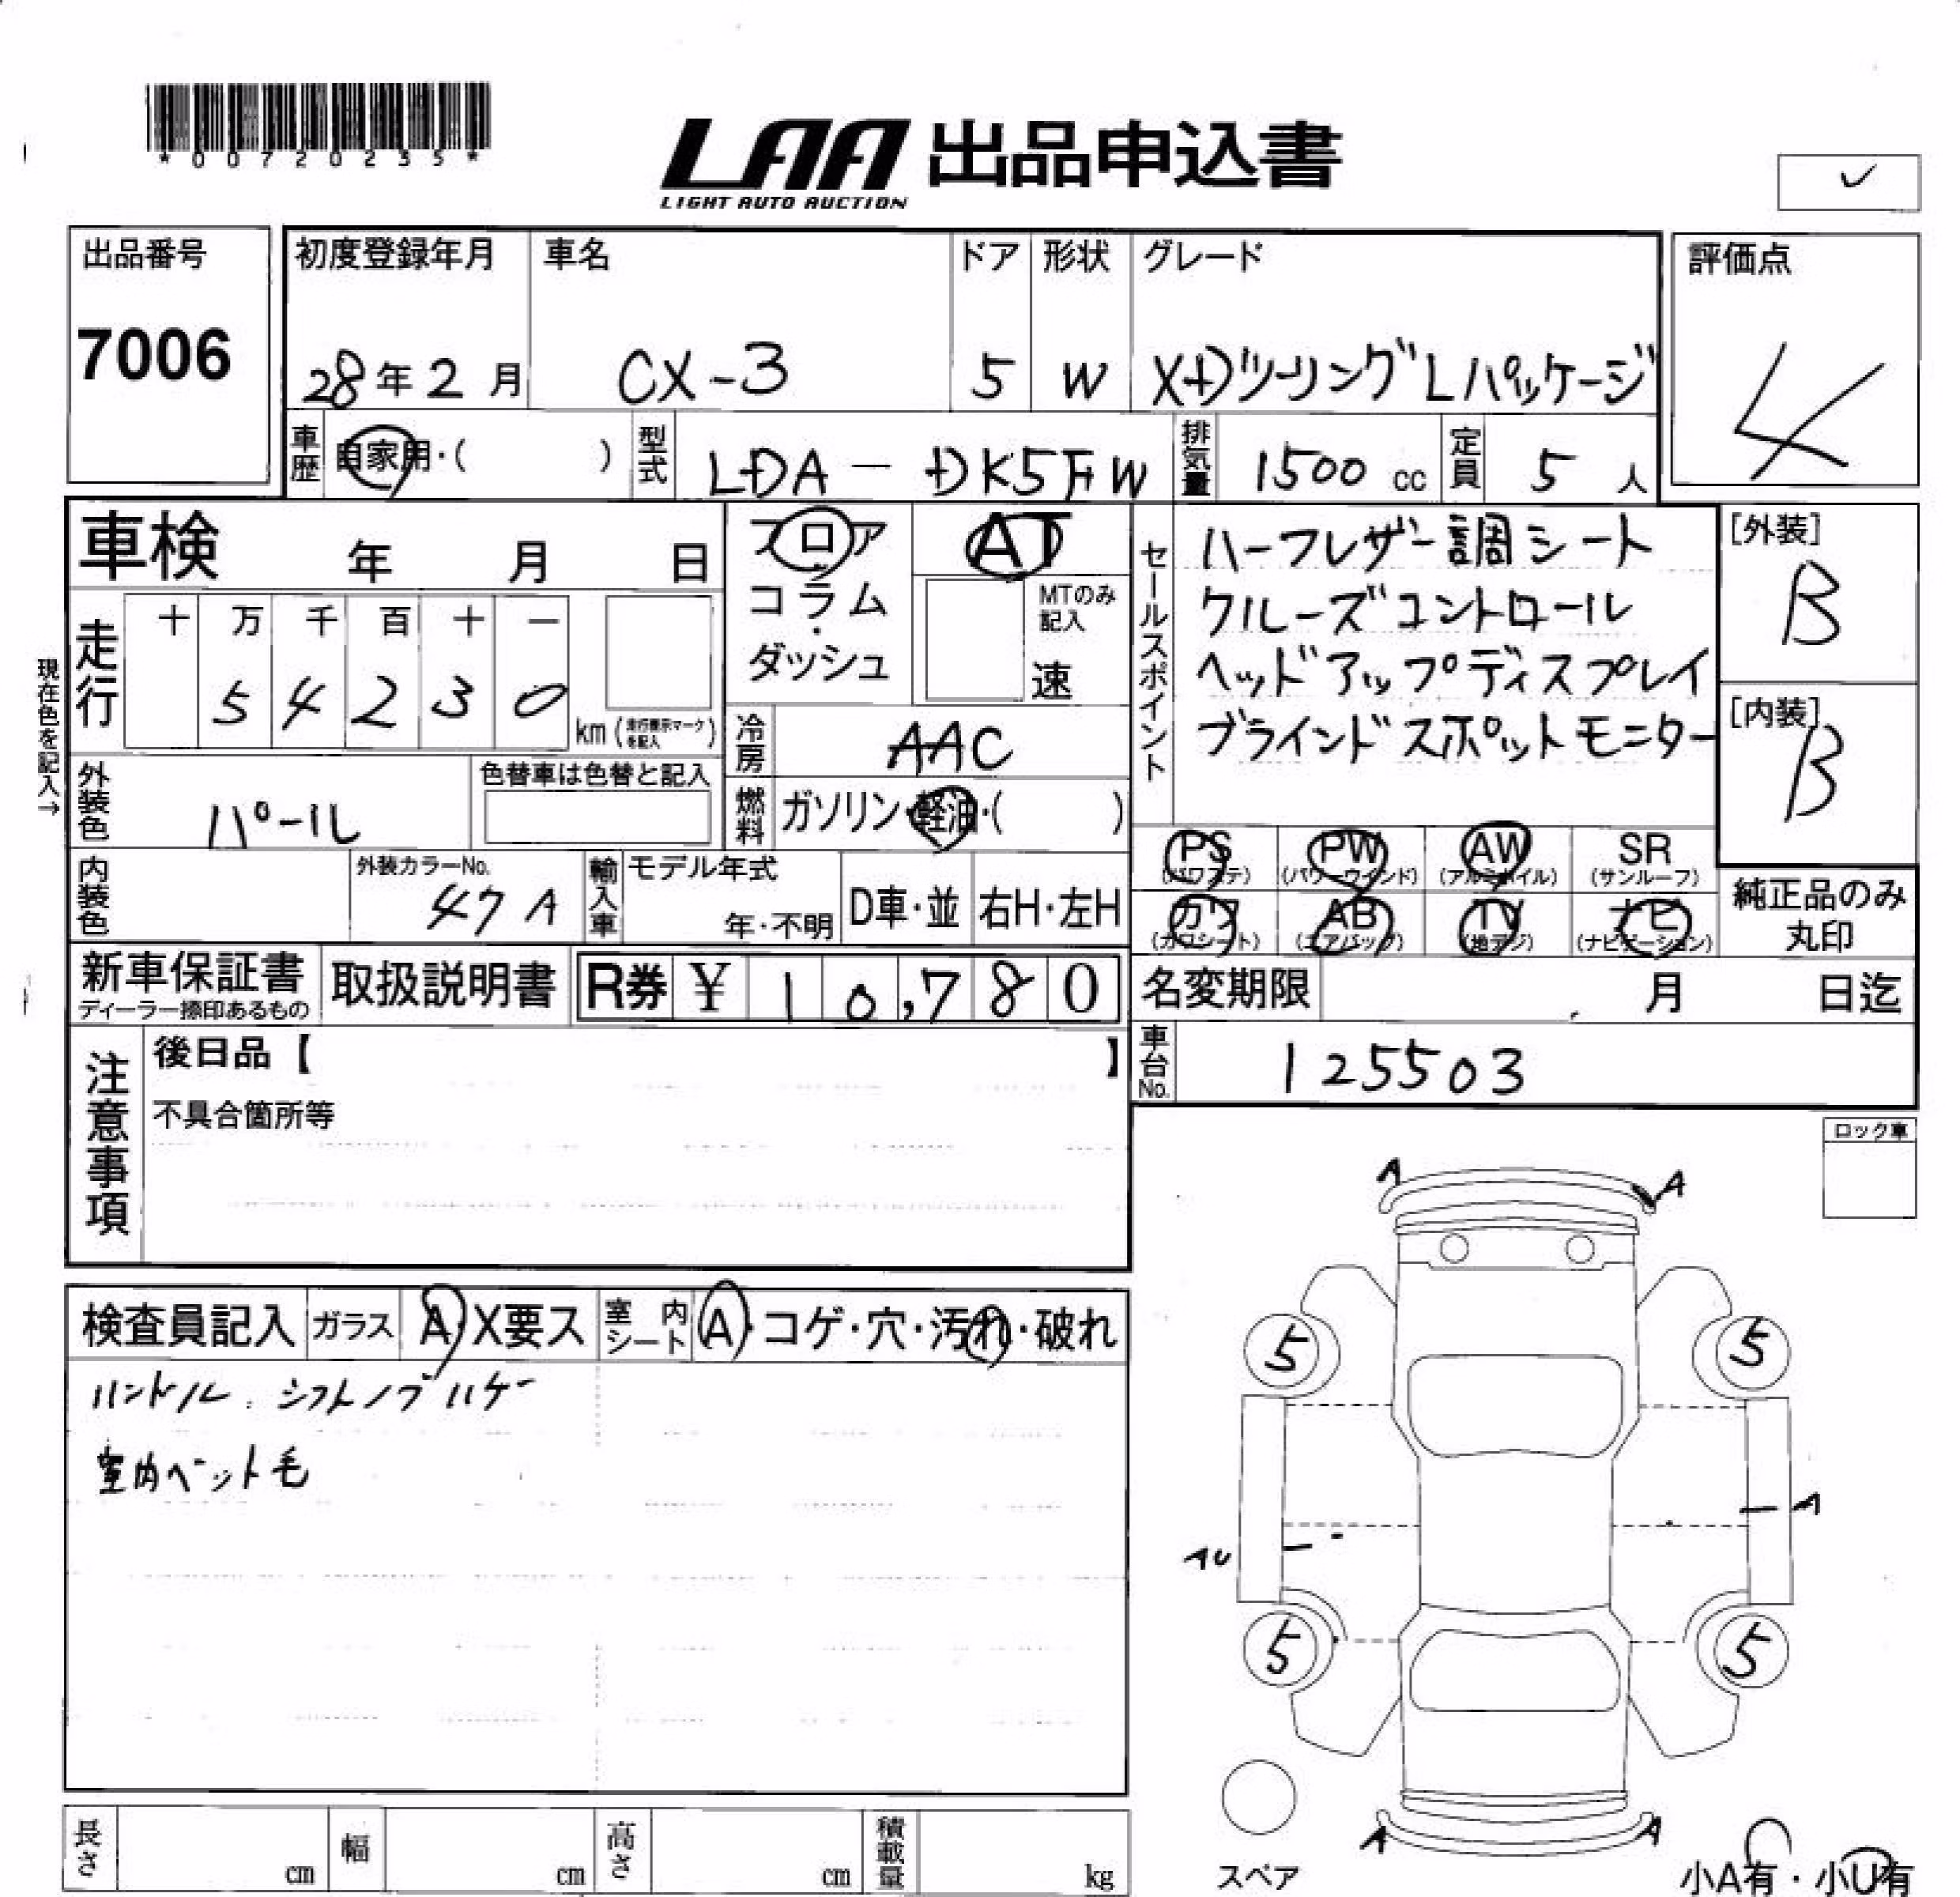 *00720235*
LAA 出品申込書
LIGHT AUTO AUCTION
✓
出品番号
7006
初度登録年月
28年2月
車名
CX-3
ドア
5
形状
W
グレード
XDツーリングLパッケージ
評価点
4
車歴 自家用・( )
型式 LDA-DK5FW
排気量 1500 cc
定員 5 人
車検 年 月 日
フロア
コラム
・
ダッシュ
AT
MTのみ
記入
速
現在色を記入→
走行
十 万 千 百 十 一
5 4 2 3 0
km (走行表示マークを記入)
冷房 AAC
外装色 パール
色替車は色替と記入
燃料 ガソリン・軽油・( )
内装色
外装カラーNo.
47A
輸入車
モデル年式
年・不明
D車・並
右H・左H
セールスポイント
ハーフレザー調シート
クルーズコントロール
ヘッドアップディスプレイ
ブラインドスポットモニター
[外装]
B
[内装]
B
PS PW AW SR
(パワステ) (パワーウインド) (アルミホイル) (サンルーフ)
カワ AB TV ナビ
(カワシート) (エアバック) (地デジ) (ナビゲーション)
純正品のみ
丸印
新車保証書
ディーラー捺印あるもの
取扱説明書
R券 ¥ 10,780
名変期限 月 日迄
車台No. 125503
注意事項
後日品【 】
不具合箇所等
ロック車
検査員記入 ガラス A X要ス 室内シート A・コゲ・穴・汚れ・破れ
ハンドル、シフトノブハゲ
室内ペット毛
A A
5 5
A
AU
5 5
A A
スペア
小A有・小U有
長さ cm 幅 cm 高さ cm 積載量 kg